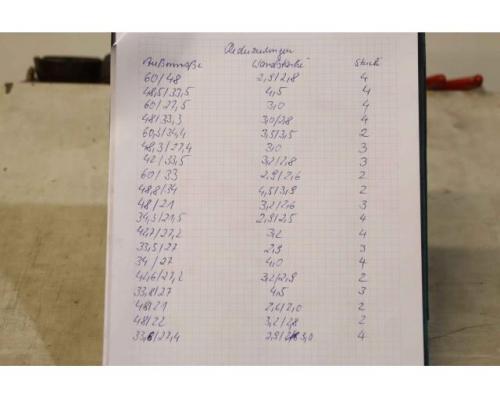 Reduzierungen
Außenmaße Wandstärke Stück
60/48 2,9/2,8 4
48,5/33,5 4,5 4
60/27,5 3,0 4
48/33,3 3,0/2,8 4
60,3/34,4 3,5/3,5 2
48,3/27,4 3,0 3
42/33,5 3,2/2,8 3
60/33 2,9/2,6 2
48,8/34 4,5/3,9 2
48/21 3,2/2,6 3
34,5/21,5 2,9/2,5 4
42,7/27,2 3,2 4
33,5/27 2,9 3
34/27 4,0 4
42,6/27,2 3,2/2,9 2
33,8/27 4,5 3
48/21 2,6/2,0 2
48/22 3,2/2,8 2
33,6/27,4 2,9/ 3,0 4